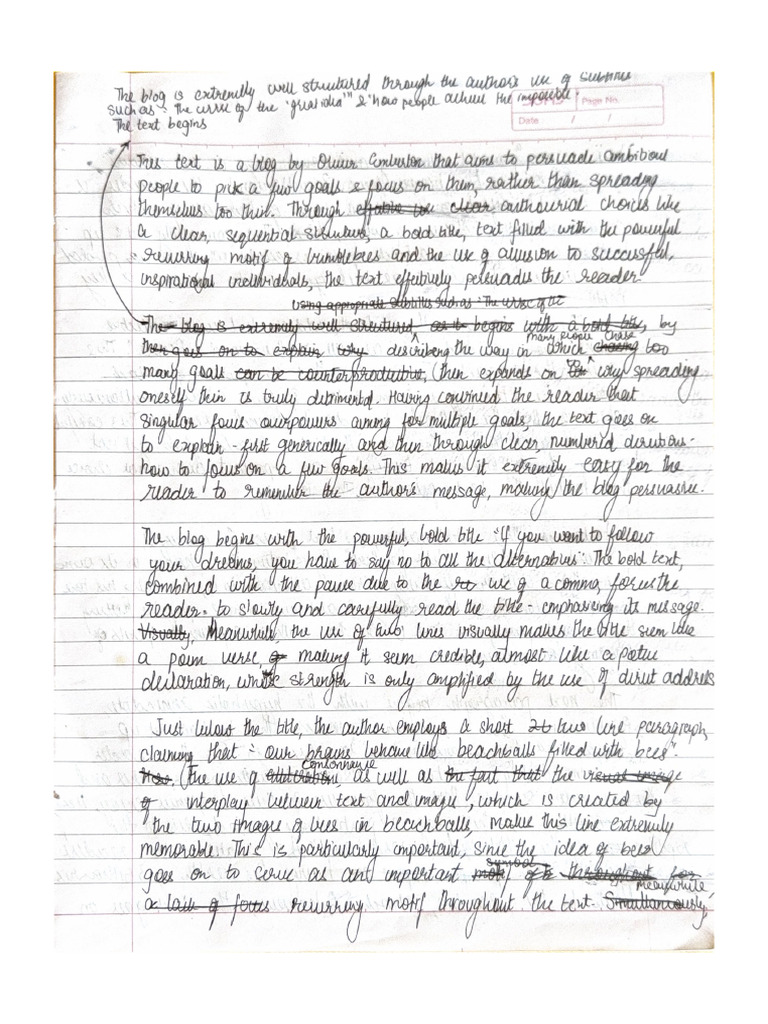 The blog is extremely well structured through the author's use of subtitles
such as "The curse of the "great idea"" & "how people achieve the impossible".
The text begins
Page No.
Date / /
This text is a blog by Oliver Emberton that aims to persuade ambitious
people to pick a few goals & focus on them, rather than spreading
themselves too thin. Through effable use clear authourial choices like
a clear, sequential structure, a bold title, text filled with the powerful
recurring motif of bumblebees and the use of allusion to successful,
inspirational individuals, the text effectively persuades the reader.
using appropriate subtitles such as "The curse of
The blog is extremely well structured as it begins with a bold title, by
many people chase
then goes on to explain why describing the way in which chasing too
many goals can be counterproductive, (then expands on why spreading
oneself thin is truly detrimental. Having convinced the reader that
singular focus overpowers aiming for multiple goals, the text goes on
to explain - first generically and then through clear, numbered directions -
how to focus on a few goals. This makes it extremely easy for the
reader to remember the author's message, making the blog persuasive.
The blog begins with the powerful, bold title "If you want to follow
your dreams, you have to say no to all the alternatives". The bold text,
combined with the pause due to the use of a comma, forces the
reader to slowly and carefully read the title - emphasising its message.
Visually, Meanwhile, the use of two lines visually makes the title seem like
a poem verse, making it seem credible, almost like a poetic
declaration, whose strength is only amplified by the use of direct address
Just below the title, the author employs a short two line paragraph,
claiming that "our brains behave like beachballs filled with bees".
consonance
The use of alliteration, as well as the fact that the visual image
of interplay between text and image, which is created by
the two images of bees in beachballs, make this line extremely
memorable. This is particularly important, since the idea of bees
symbol
goes on to serve as an important motif of throughout for
meanwhile
a lack of focus recurring motif throughout the text. Simultaneously,